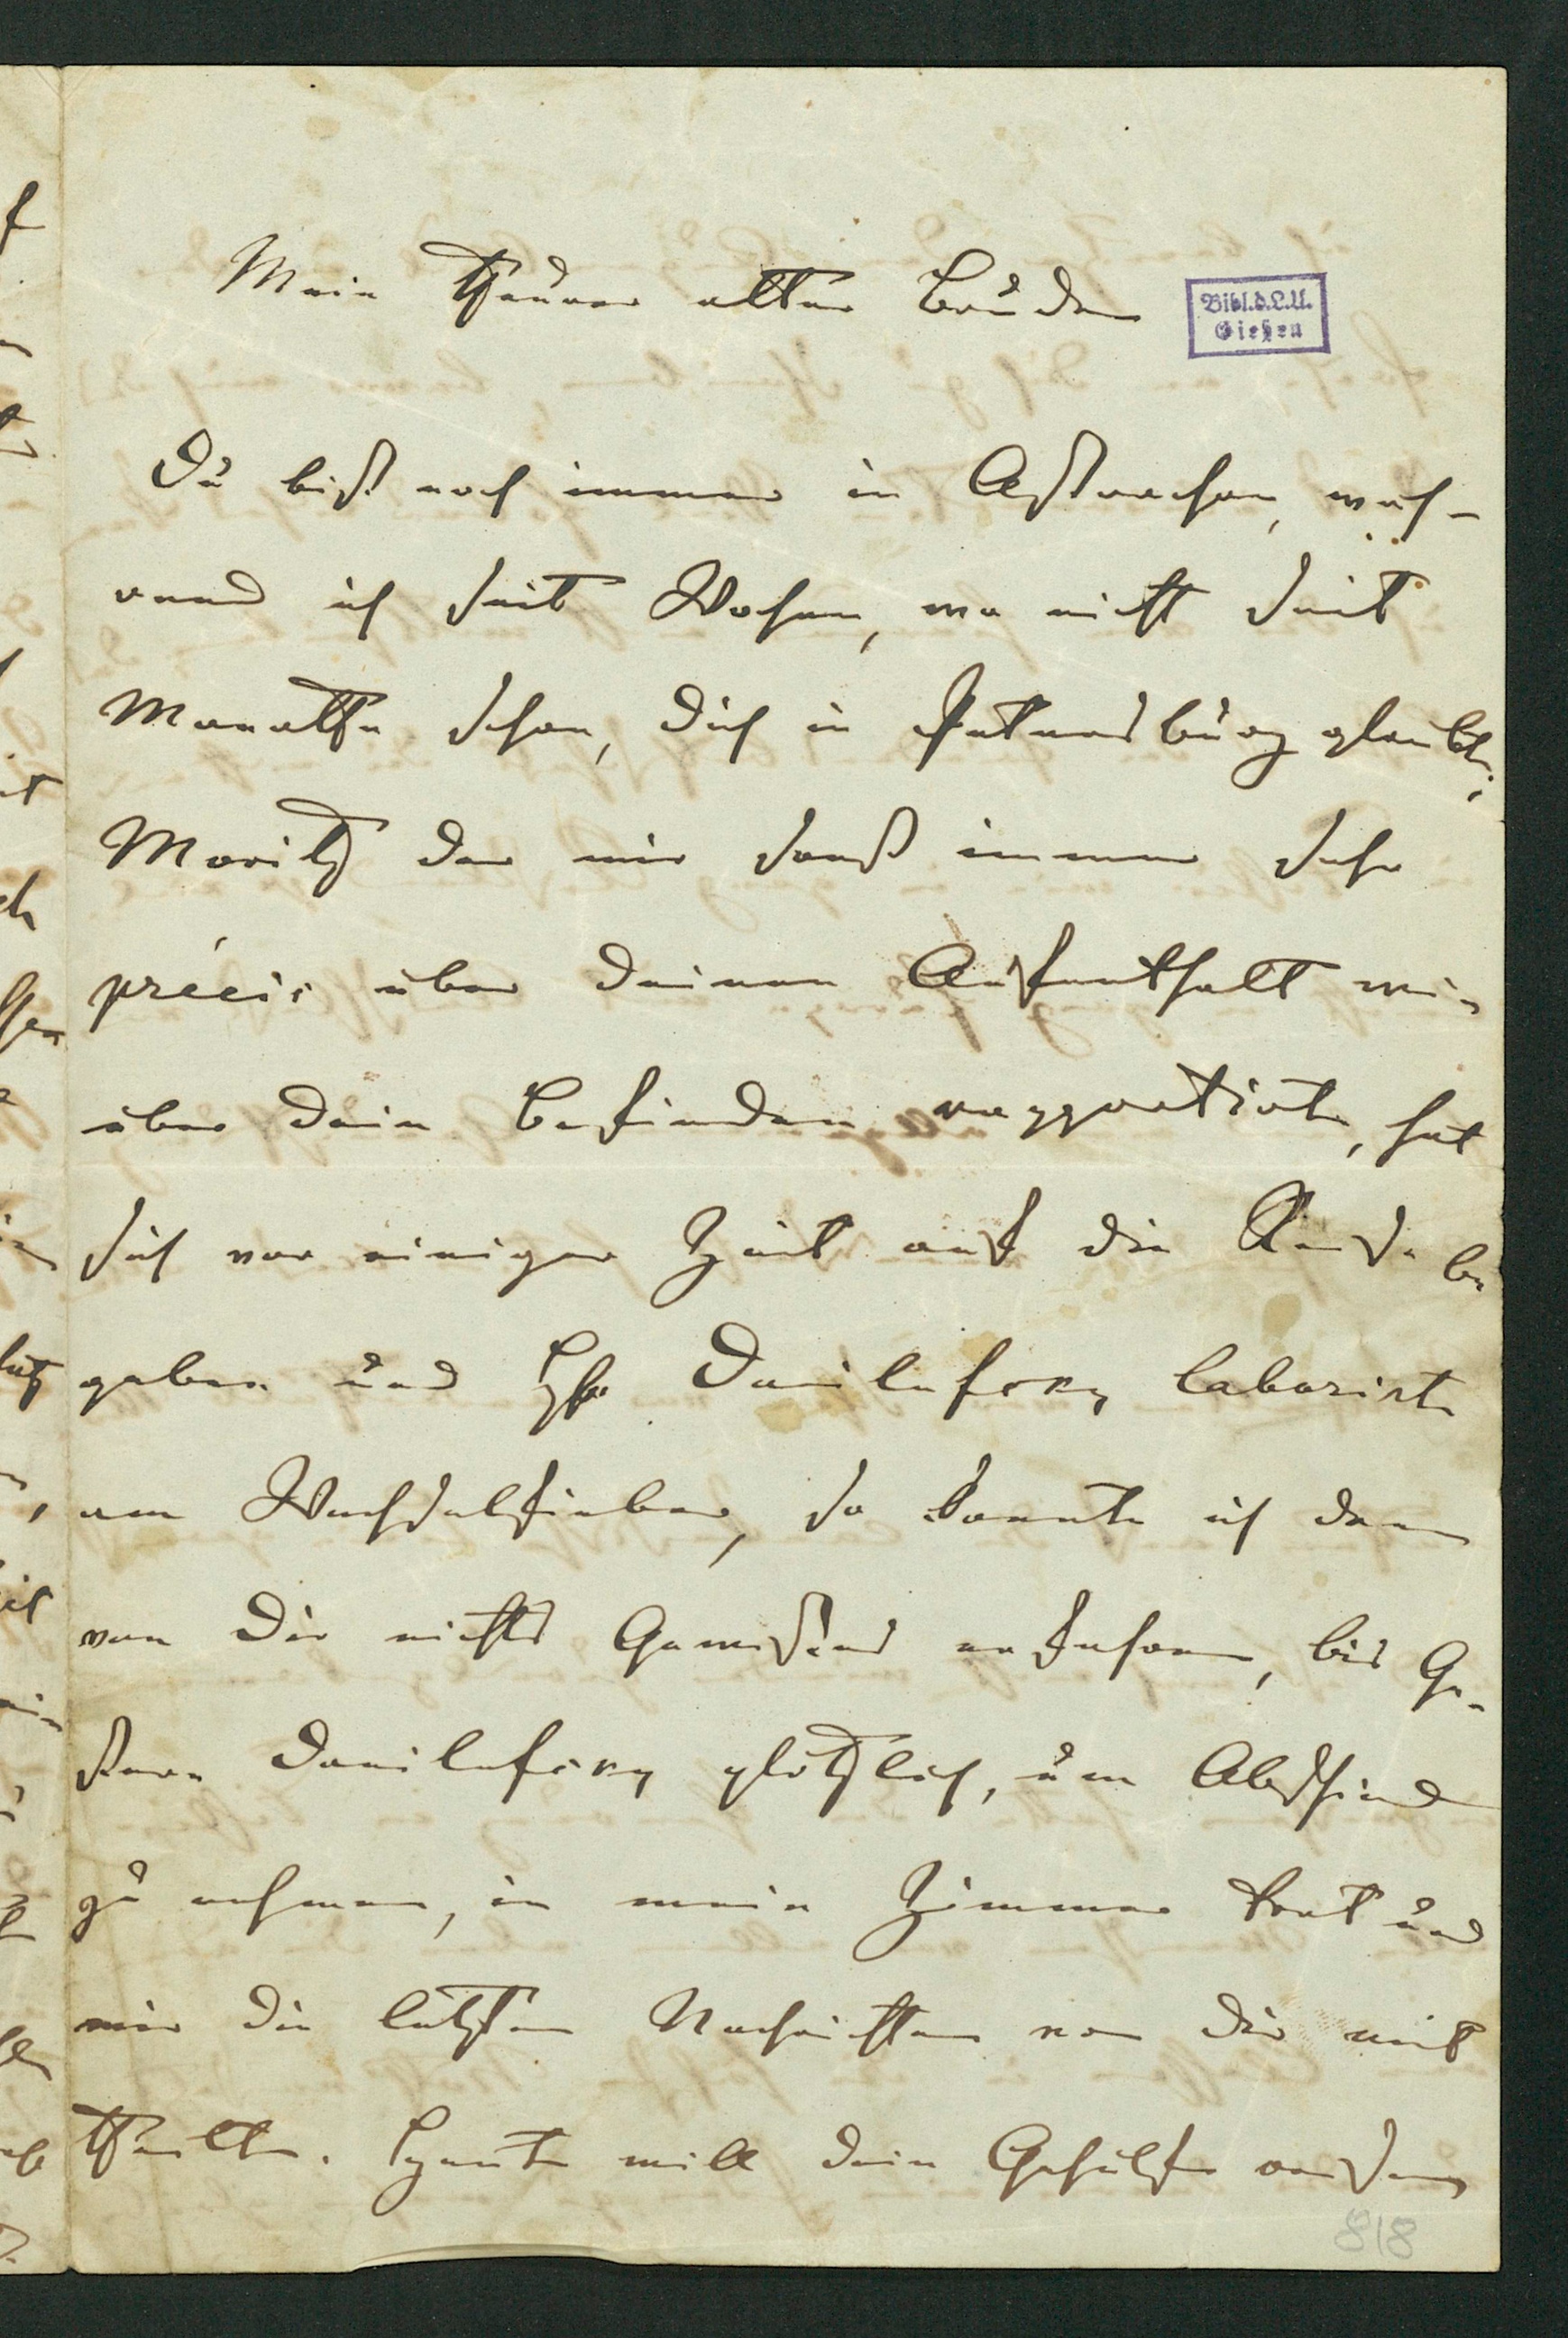 Mein theurer alter Bruder
Bibl.d.L.U.
Gießen
Du bist noch immer in Astrachan, wäh-
rend ich seit Wochen, wo nicht seit
Monathe schon, dich in Petersburg glaubte;
Moritz der mir sonst immer sehr
précis über deinen Aufenthalt wie
über dein Befinden rapportirte, hat
sich vor einiger Zeit auf die Reise be
geben und Hr Danilefsky laborirte
am Wechselfieber, so konnte ich denn
von Dir nichts Gewisses erfahren, bis Ge-
stern Danilefsky plötzlich, um Abschied
zu nehmen, in mein Zimmer trat und
mir die letzten Nachrichten von dir mit
theilte. Heute will dein Gehülfe reisen
818